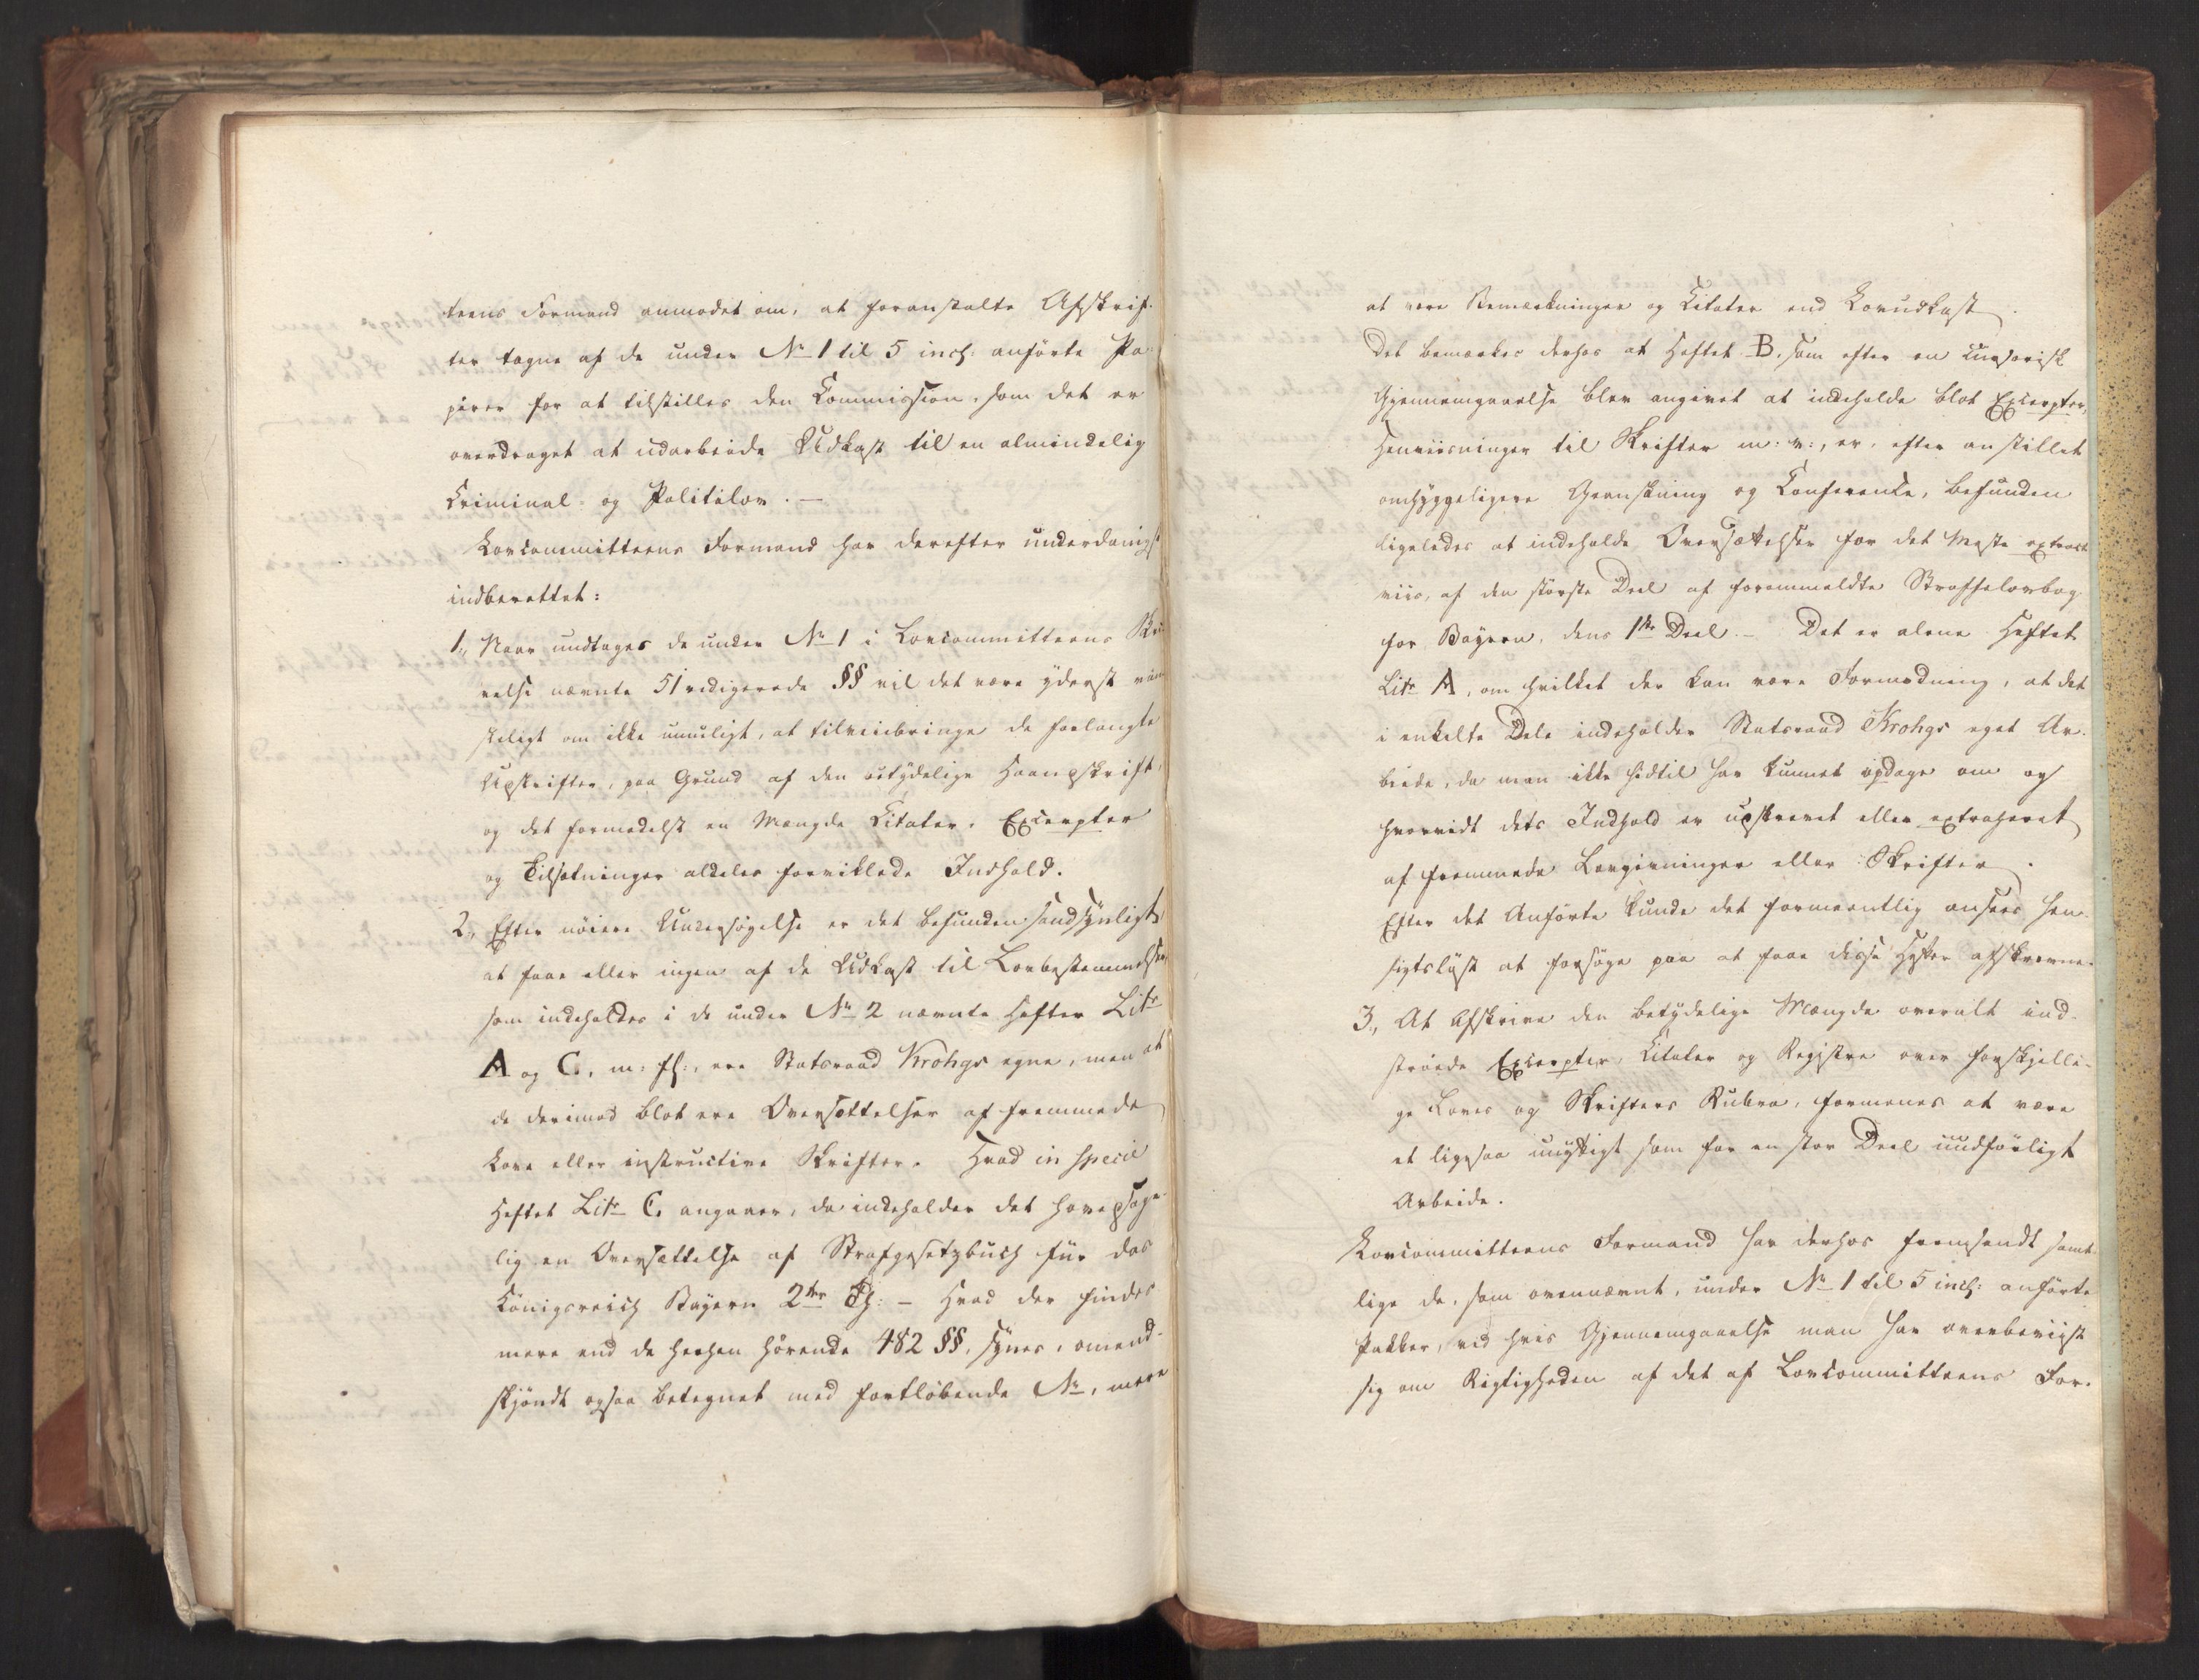 teens Formand anmodet om, at foranstalte Afskrif-
ter tagne af de under No 1 til 5 incl: anførte Pa-
pirer for at tilstilles den Commission, som det er
overdraget at udarbeide Udkast til en almindelig
Criminal- og Politilov. —
Lovcommitteens Formand har derefter underdanigst
indberettet:
1, Naar undtages de under No 1 i Lovcommitteens Skri-
velse nævnte 51 redigerede §§ vil det være yderst van-
skeligt om ikke umuligt, at tilveiebringe de forlangte
Afskrifter, paa Grund af den utydelige Haandskrift,
og det formedelst en Mængde Citater, Excerpter
og Tilsætninger aldeles forviklede Indhold.
2, Efter nøiere Undersøgelse er det befunden sandsynligt,
at faae eller ingen af de Udkast til Lovbestemmelser,
som indeholdes i de under No 2 nævnte Hefter Litr
A og C, m: fl:, ere Statsraad Krohgs egne, men at
de derimod blot ere Oversættelser af fremmede
Love eller instructive Skrifter. Hvad in specie
Heftet Litr C. angaaer, da indeholder det hovedsage-
lig en Oversættelse af Strafgesetzbuch für das
Königreich Bayern 2ter Th: – Hvad der findes
mere end de herhen hørende 482 §§, synes, omend-
skjøndt ogsaa betegnet med fortløbende No, mere
at være Bemærkninger og Citater end Lovudkast.
Det bemærkes derhos at Heftet B, som efter en cursorisk
Gjennemgaaelse blev angivet at indeholde blot Excerpter,
Henviisninger til Skrifter m: v:, er, efter anstillet
omhyggeligere Granskning og Conference, befunden
ligeledes at indeholde Oversættelser for det Meste extract-
viis, af den største Deel af foranmeldte Straffelovbog
for Bayern, dens 1ste Deel. – Det er alene Heftet
Litr A, om hvilket der kan være Formodning, at det
i enkelte Dele indeholder Statsraad Krohgs eget Ar-
beide, da man ikke hidtil har kunnet opdage om og
hvorvidt dets Indhold er udskrevet eller extraheret
af fremmede Lovgivninger eller Skrifter.
Efter det Anførte kunde det formeentlig ansees hen-
sigtsløst at forsøge paa at faae disse Hefter afskrevne.
3, At afskrive den betydelige Mængde overalt ind-
strøede Excerpter, Citater og Registre over forskjelli-
ge Loves og Skrifters Rubra, formenes at være
et ligesaa unyttigt som for en stor Deel uudførligt
Arbeide.
Lovcommitteens Formand har derhos fremsendt samt-
lige de, som ovennævnt, under No 1 til 5 incl: anførte
Pakker, ved hvis Gjennemgaaelse man har overbeviist
sig om Rigtigheden af det af Lovcommitteens For-